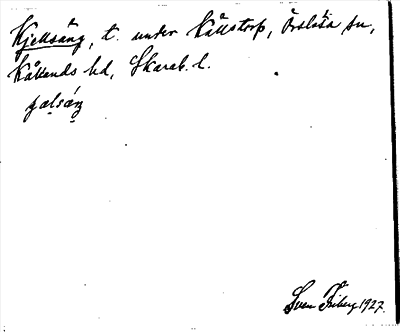 Kjellsäng, t. under Källstorp, Örslösa sn,
Kållands hd, Skarab. l.
Sven Friberg 1927.